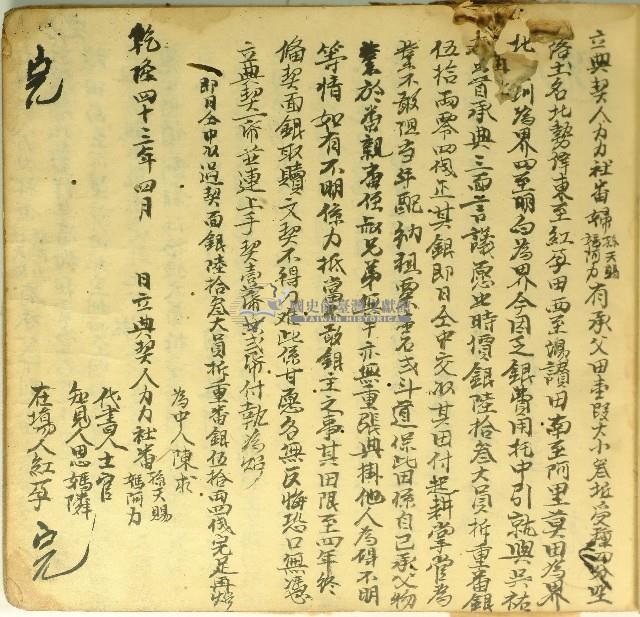 立典契人力力社番婦孫天賜瑪阿力有承父田壹段大小叁坵受種四分坐
落土名北勢停東至紅孕田西至場讚田南至阿里莫田為界
北圳為界四至明白為界今因乏銀費用托中引就與吳祐
首承典三面言議愿出時價銀陸拾叁大員折重番銀
伍拾兩零四錢足其銀即日仝中交收其田付起耕掌管為
業不敢阻当年配納租粟壹石弍斗道保此田係自己承父物
業於番親番侄叔兄弟無干亦無重張典掛他人為碍不明
等情如有不明係力抵當不敢銀主之事其田限至四年終
備契面銀取贖文契不得刁难此係甘愿各無反悔恐口無憑
立典契一帋並連上手契壹帋共弍帋付執為炤
一即日仝中收過契面銀陸拾叁大員折重番銀伍拾両四錢完足再炤
為中人陳求
乾隆四十三年四月 日立典契人力力社番孫天賜瑪阿力
代書人士官
知見人思媽隣
在場人紅孕
完
完
國史館臺灣文獻館
TAIWAN HISTORICA